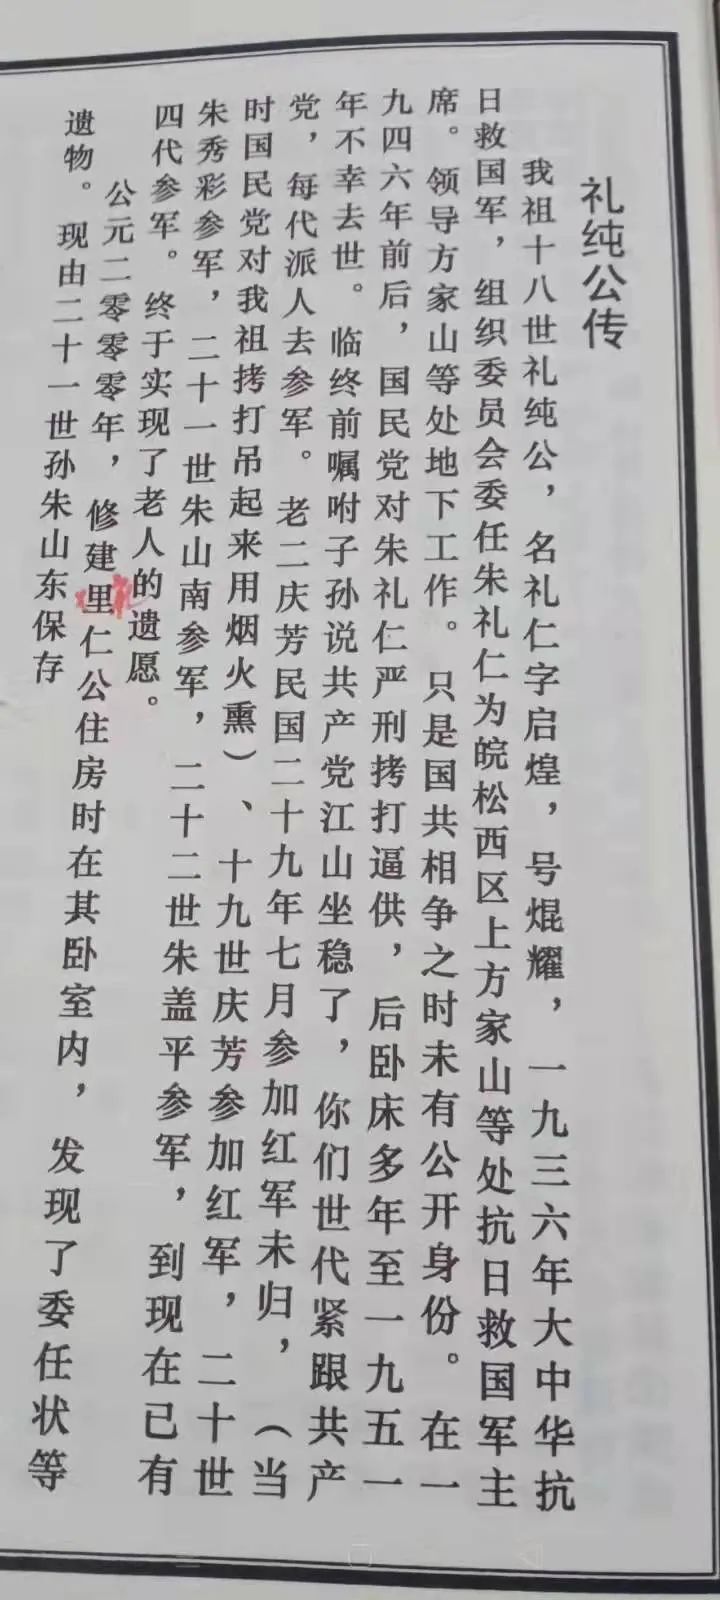 礼纯公传
我祖十八世礼纯公，名礼仁字启煌，号焜耀，一九三六年大中华抗
日救国军，组织委员会委任朱礼仁为皖松西区上方家山等处抗日救国军主
席。领导方家山等处地下工作。只是国共相争之时未有公开身份。在一
九四六年前后，国民党对朱礼仁严刑拷打逼供，后卧床多年至一九五一
年不幸去世。临终前嘱咐子孙说共产党江山坐稳了，你们世代紧跟共产
党，每代派人去参军。老二庆芳民国二十九年七月参加红军未归，（当
时国民党对我祖拷打吊起来用烟火熏）、十九世庆芳参加红军，二十世
朱秀彩参军，二十一世朱山南参军，二十二世朱盖平参军，到现在已有
四代参军。终于实现了老人的遗愿。
公元二零零零年，修建里仁公住房时在其卧室内，发现了委任状等
遗物。现由二十一世孙朱山东保存